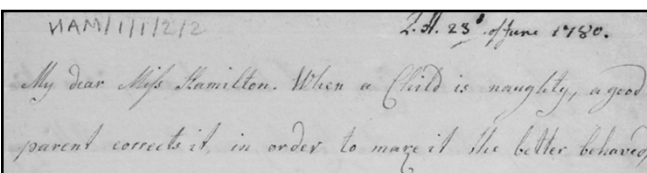 HAM/1/1/2/2
Q.H. 23 of June 1780.
My dear Miſs Hamilton. When a Child is naughty, a good
parent corrects it in order to make it the better behaved,